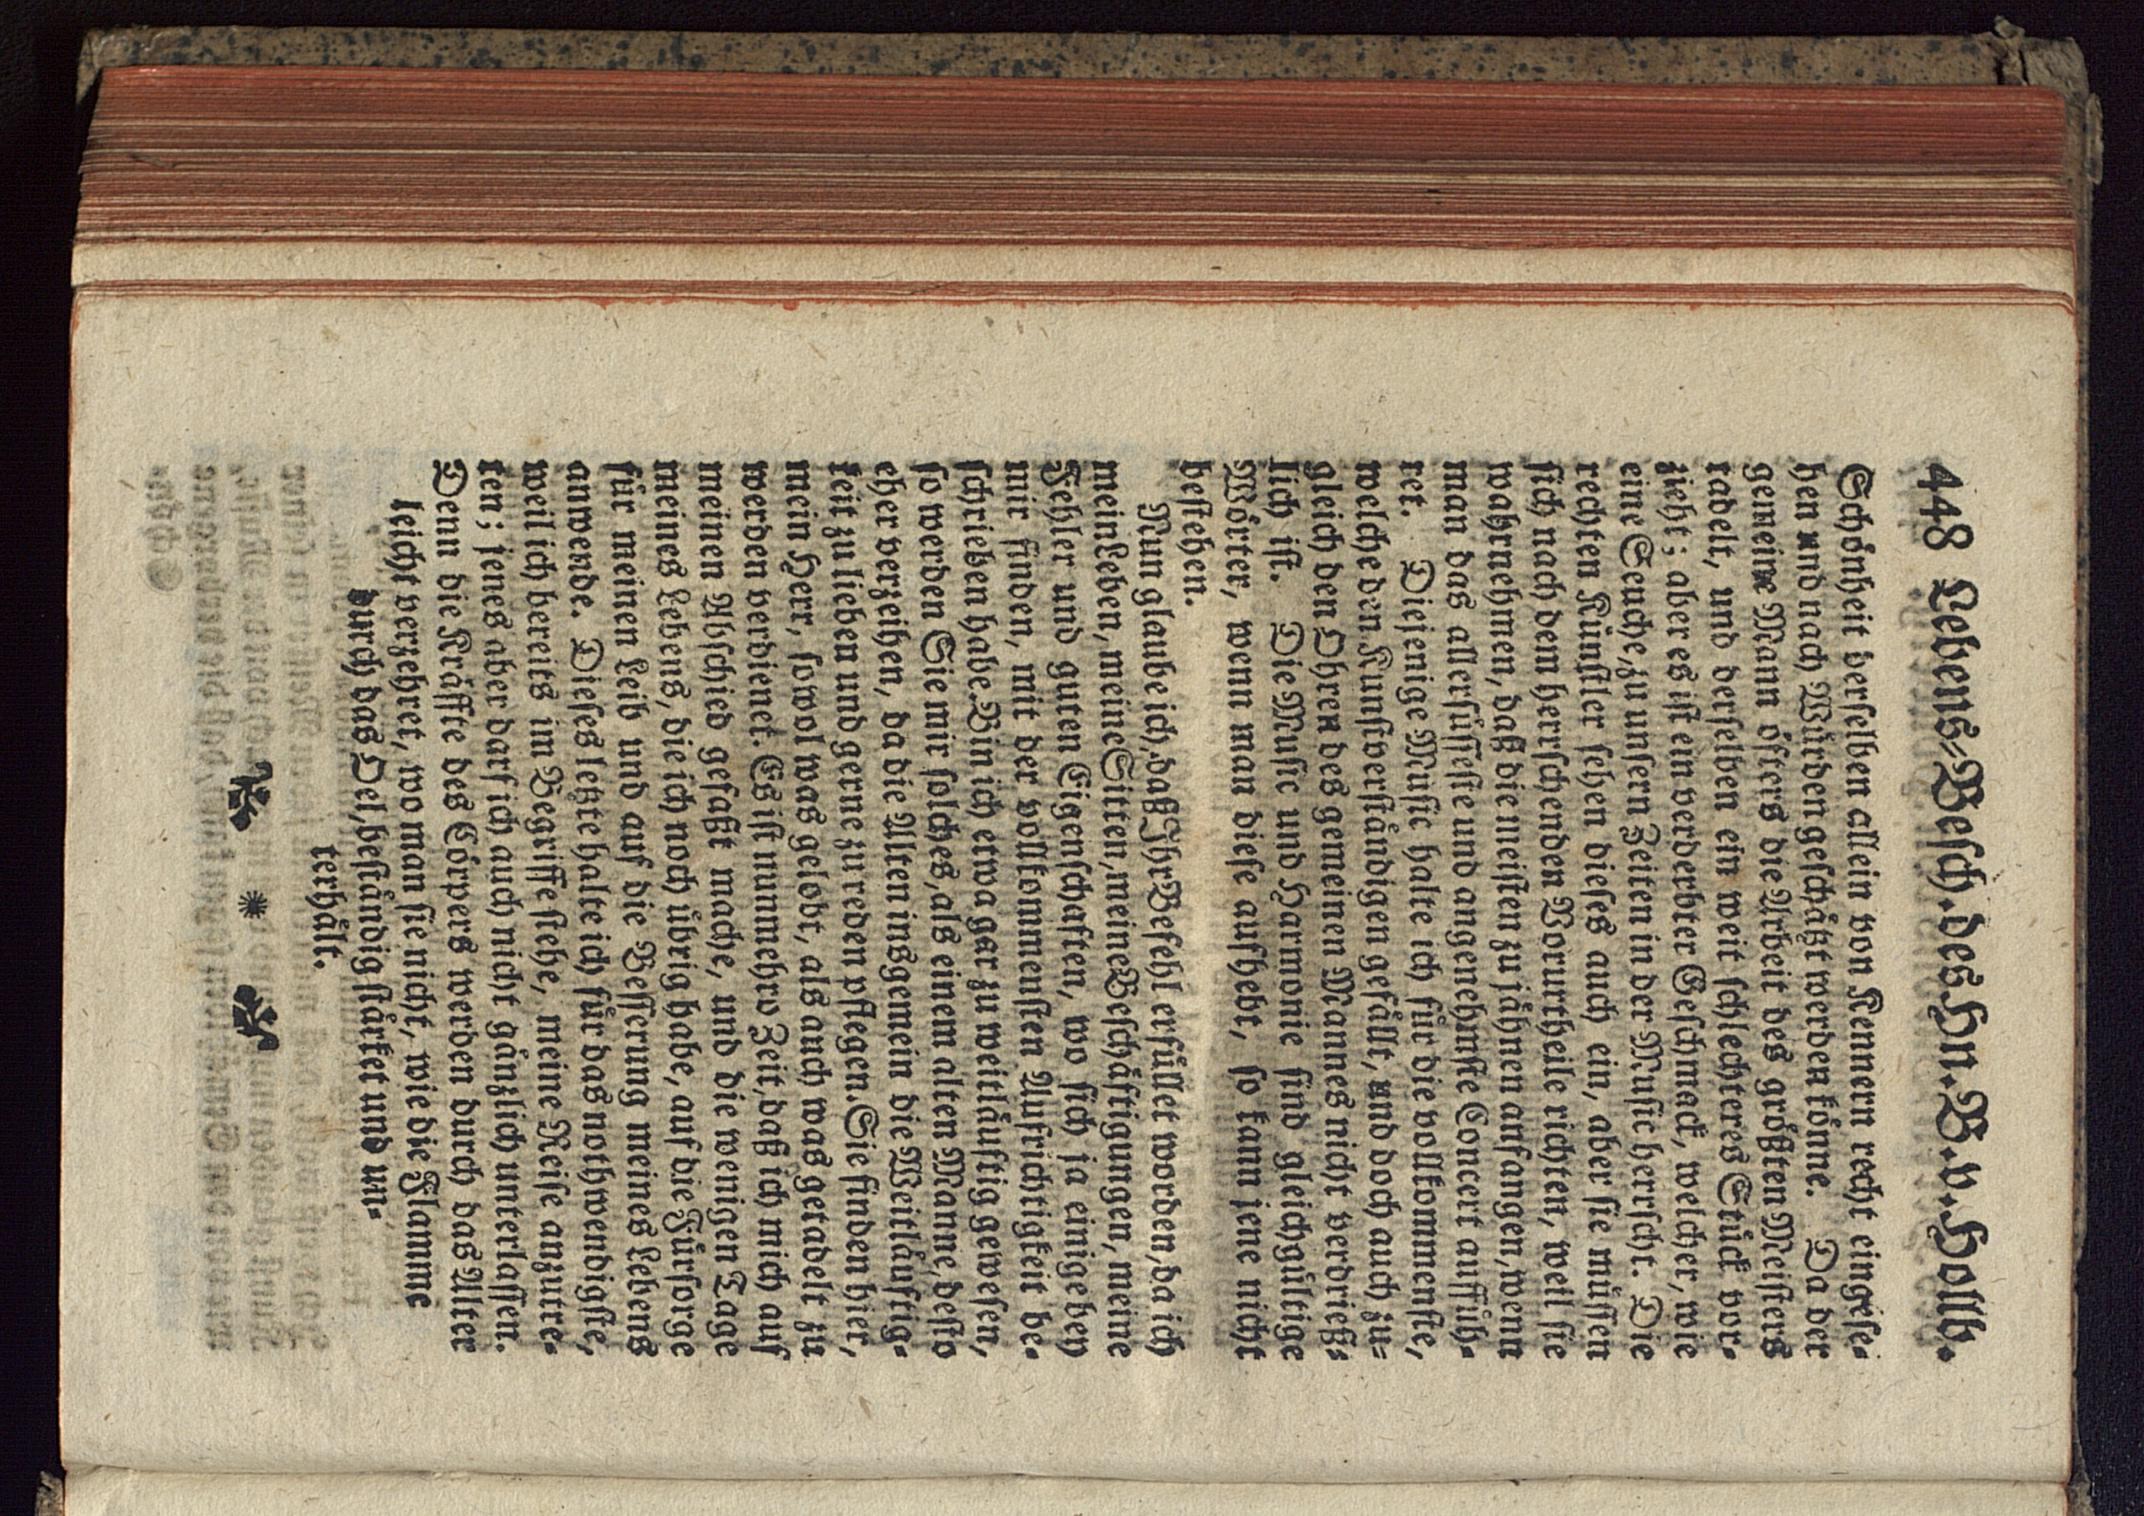 448 Lebens-Besch. des Hn. B. v. Hollb.
Schönheit derselben allein von Kennern recht eingese-
hen und nach Würden geschätzt werden könne. Da der
gemeine Mann öfters die Arbeit des größten Meisters
tadelt, und derselben ein weit schlechteres Stück vor-
zieht; aber es ist ein verderbter Geschmack, welcher, wie
eine Seuche, zu unsern Zeiten in der Music herrscht. Die
rechten Künstler sehen dieses auch ein, aber sie müssen
sich nach dem herrschenden Vorurtheile richten, weil sie
wahrnehmen, daß die meisten zu jähnen anfangen, wenn
man das allersüsseste und angenehmste Concert auffüh-
ret. Diejenige Music halte ich für die vollkommenste,
welche den Kunstverständigen gefällt, und doch auch zu-
gleich den Ohren des gemeinen Mannes nicht verdrieß-
lich ist. Die Music und Harmonie sind gleichgültige
Wörter, wenn man diese aufhebt, so kann jene nicht
bestehen.
Nun glaube ich, daß Ihr Befehl erfüllet worden, da ich
mein Leben, meine Sitten, meine Beschäftigungen, meine
Fehler und guten Eigenschaften, wo sich ja einige bey
mir finden, mit der vollkommensten Aufrichtigkeit be-
schrieben habe. Bin ich etwa gar zu weitläuftig gewesen,
so werden Sie mir solches, als einem alten Manne, desto
eher verzeihen, da die Alten insgemein die Weitläuftig-
keit zu lieben und gerne zu reden pflegen. Sie finden hier,
mein Herr, sowol was gelobt, als auch was getadelt zu
werden verdienet. Es ist nunmehro Zeit, daß ich mich auf
meinen Abschied gefaßt mache, und die wenigen Tage
meines Lebens, die ich noch übrig habe, auf die Fürsorge
für meinen Leib und auf die Besserung meines Lebens
anwende. Dieses letzte halte ich für das nothwendigste,
weil ich bereits im Begriffe stehe, meine Reise anzutre-
ten; jenes aber darf ich auch nicht gänzlich unterlassen.
Denn die Kräffte des Cörpers werden durch das Alter
leicht verzehret, wo man sie nicht, wie die Flamme
durch das Oel, beständig stärket und un-
terhält.